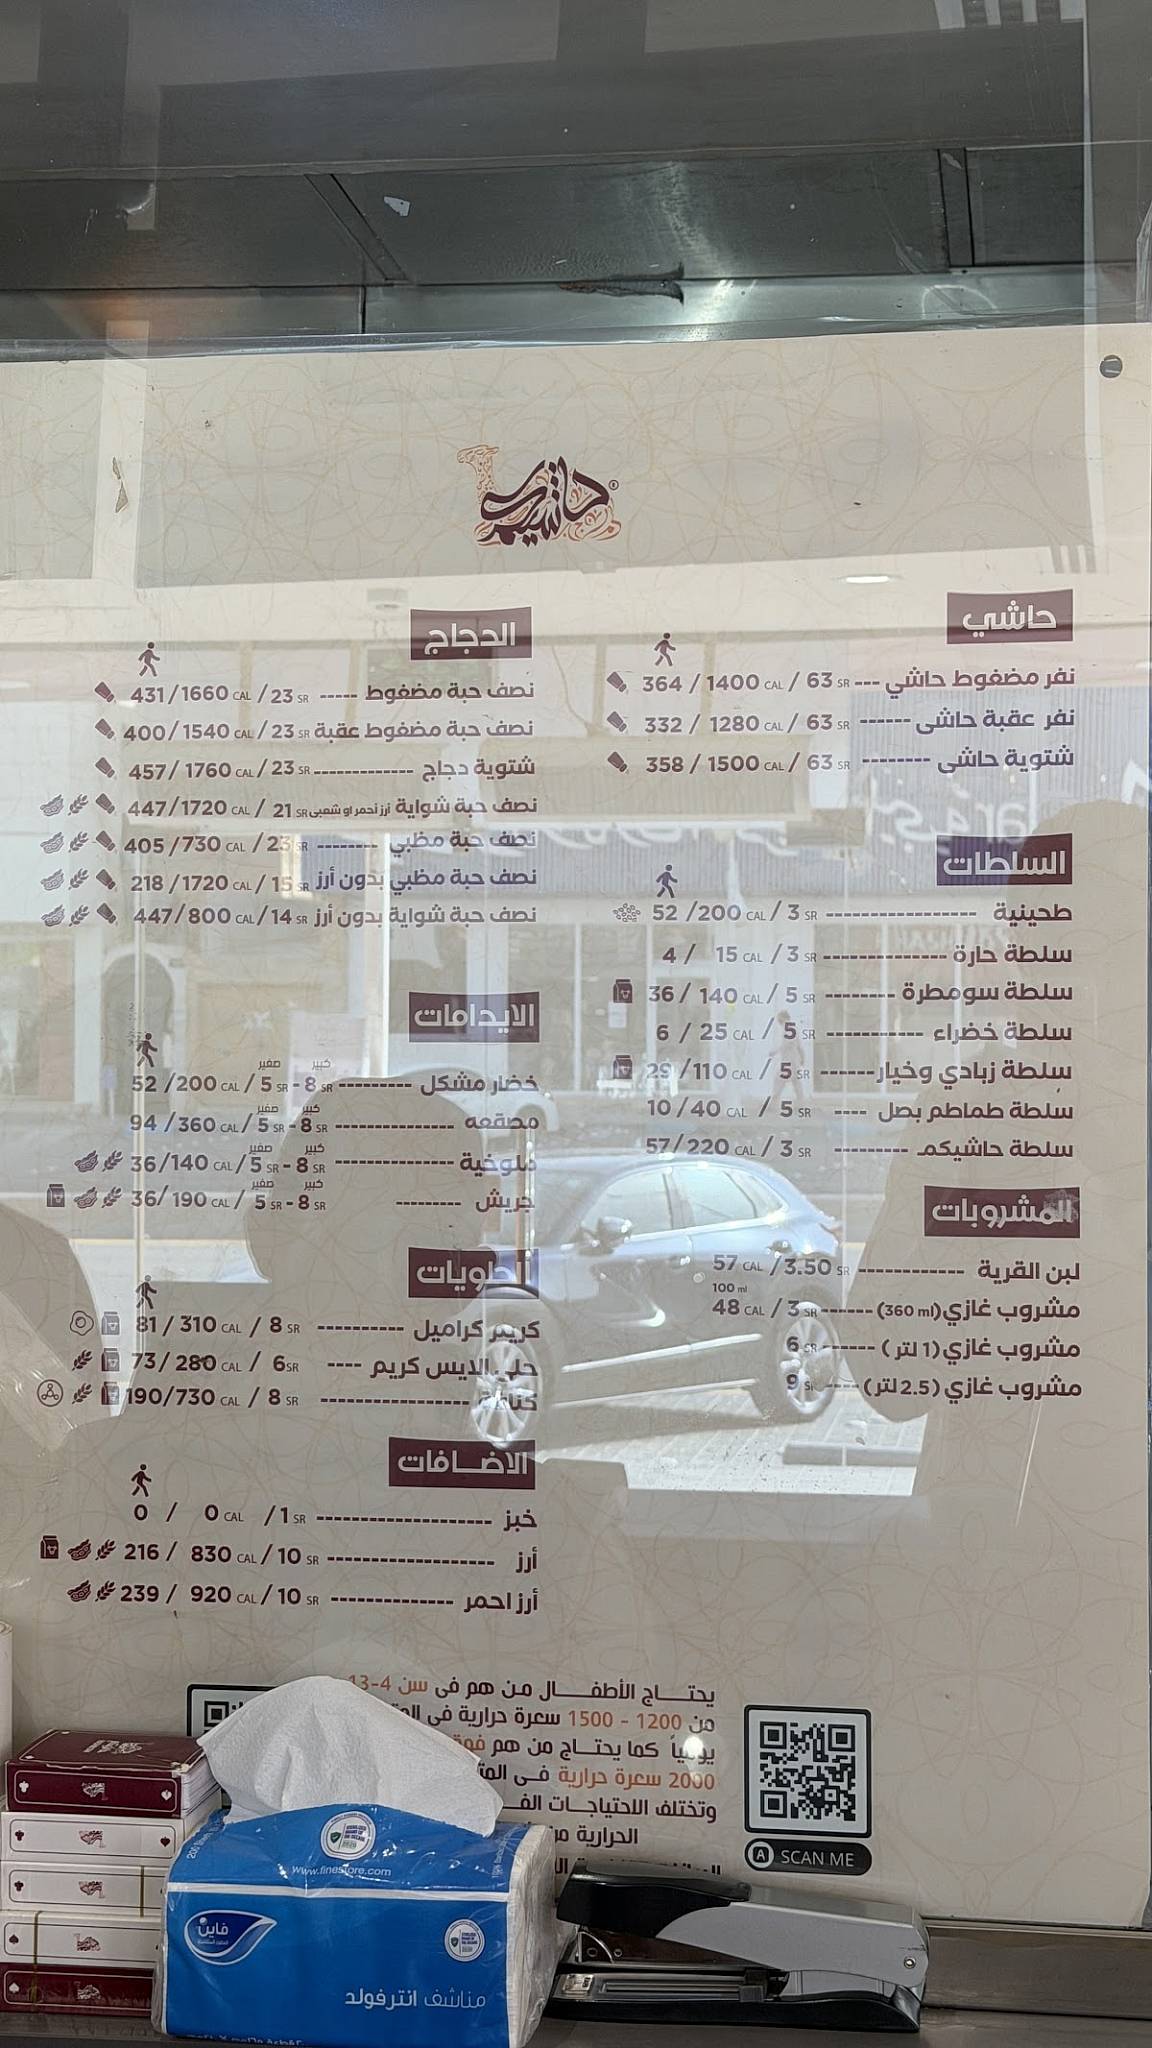 حاشيكم
حاشي
نفر مضغوط حاشي --- 364 / 1400 CAL / 63 SR
نفر عقبة حاشي ------ 332 / 1280 CAL / 63 SR
شتوية حاشي -------- 358 / 1500 CAL / 63 SR
السلطات
طحينية ---------------- 52 /200 CAL / 3 SR
سلطة حارة -------------- 4 / 15 CAL / 3 SR
سلطة سومطرة -------- 36 / 140 CAL / 5 SR
سلطة خضراء ----------- 6 / 25 CAL / 5 SR
سلطة زبادي وخيار ------ 29 /110 CAL / 5 SR
سلطة طماطم بصل ---- 10 /40 CAL / 5 SR
سلطة حاشيكم --------- 57/ 220 CAL / 3 SR
المشروبات
لبن القرية ------------ 57 CAL / 3.50 SR
100 ml
مشروب غازي (360 ml) ------ 48 CAL / 3 SR
مشروب غازي (1 لتر) ------ 6 SR
مشروب غازي (2.5 لتر) ---- 9 SR
الدجاج
نصف حبة مضغوط ----- 431 / 1660 CAL / 23 SR
نصف حبة مضغوط عقبة 400 / 1540 CAL / 23 SR
شتوية دجاج ------------- 457 / 1760 CAL / 23 SR
نصف حبة شواية أرز أحمر او شعبي 447 /1720 CAL / 21 SR
نصف حبة مظبي -------- 405 /730 CAL / 23 SR
نصف حبة مظبي بدون أرز 218 /1720 CAL / 15 SR
نصف حبة شواية بدون أرز 447/ 800 CAL /14 SR
الايدامات
كبير صغير
خضار مشكل --------- 52 /200 CAL / 5 SR - 8 SR
كبير صغير
مصقعه --------------- 94 / 360 CAL / 5 SR - 8 SR
كبير صغير
ملوخية -------------- 36 /140 CAL / 5 SR - 8 SR
كبير صغير
جريش --------- 36/ 190 CAL / 5 SR - 8 SR
الحلويات
كريم كراميل ----------- 81 / 310 CAL / 8 SR
حلى الايس كريم ---- 73 / 280 CAL / 6 SR
كنافة ------------------ 190/730 CAL / 8 SR
الاضافات
خبز -------------------- 0 / 0 CAL / 1 SR
أرز ------------------- 216 / 830 CAL / 10 SR
أرز احمر -------------- 239 / 920 CAL / 10 SR
يحتاج الأطفال من هم في سن 4-13
من 1200 - 1500 سعرة حرارية في
يومياً كما يحتاج من هم فوق
2000 سعرة حرارية في
وتختلف الاحتياجات
الحرارية من
SCAN ME
www.finestore.com
فاين
مناشف انترفولد